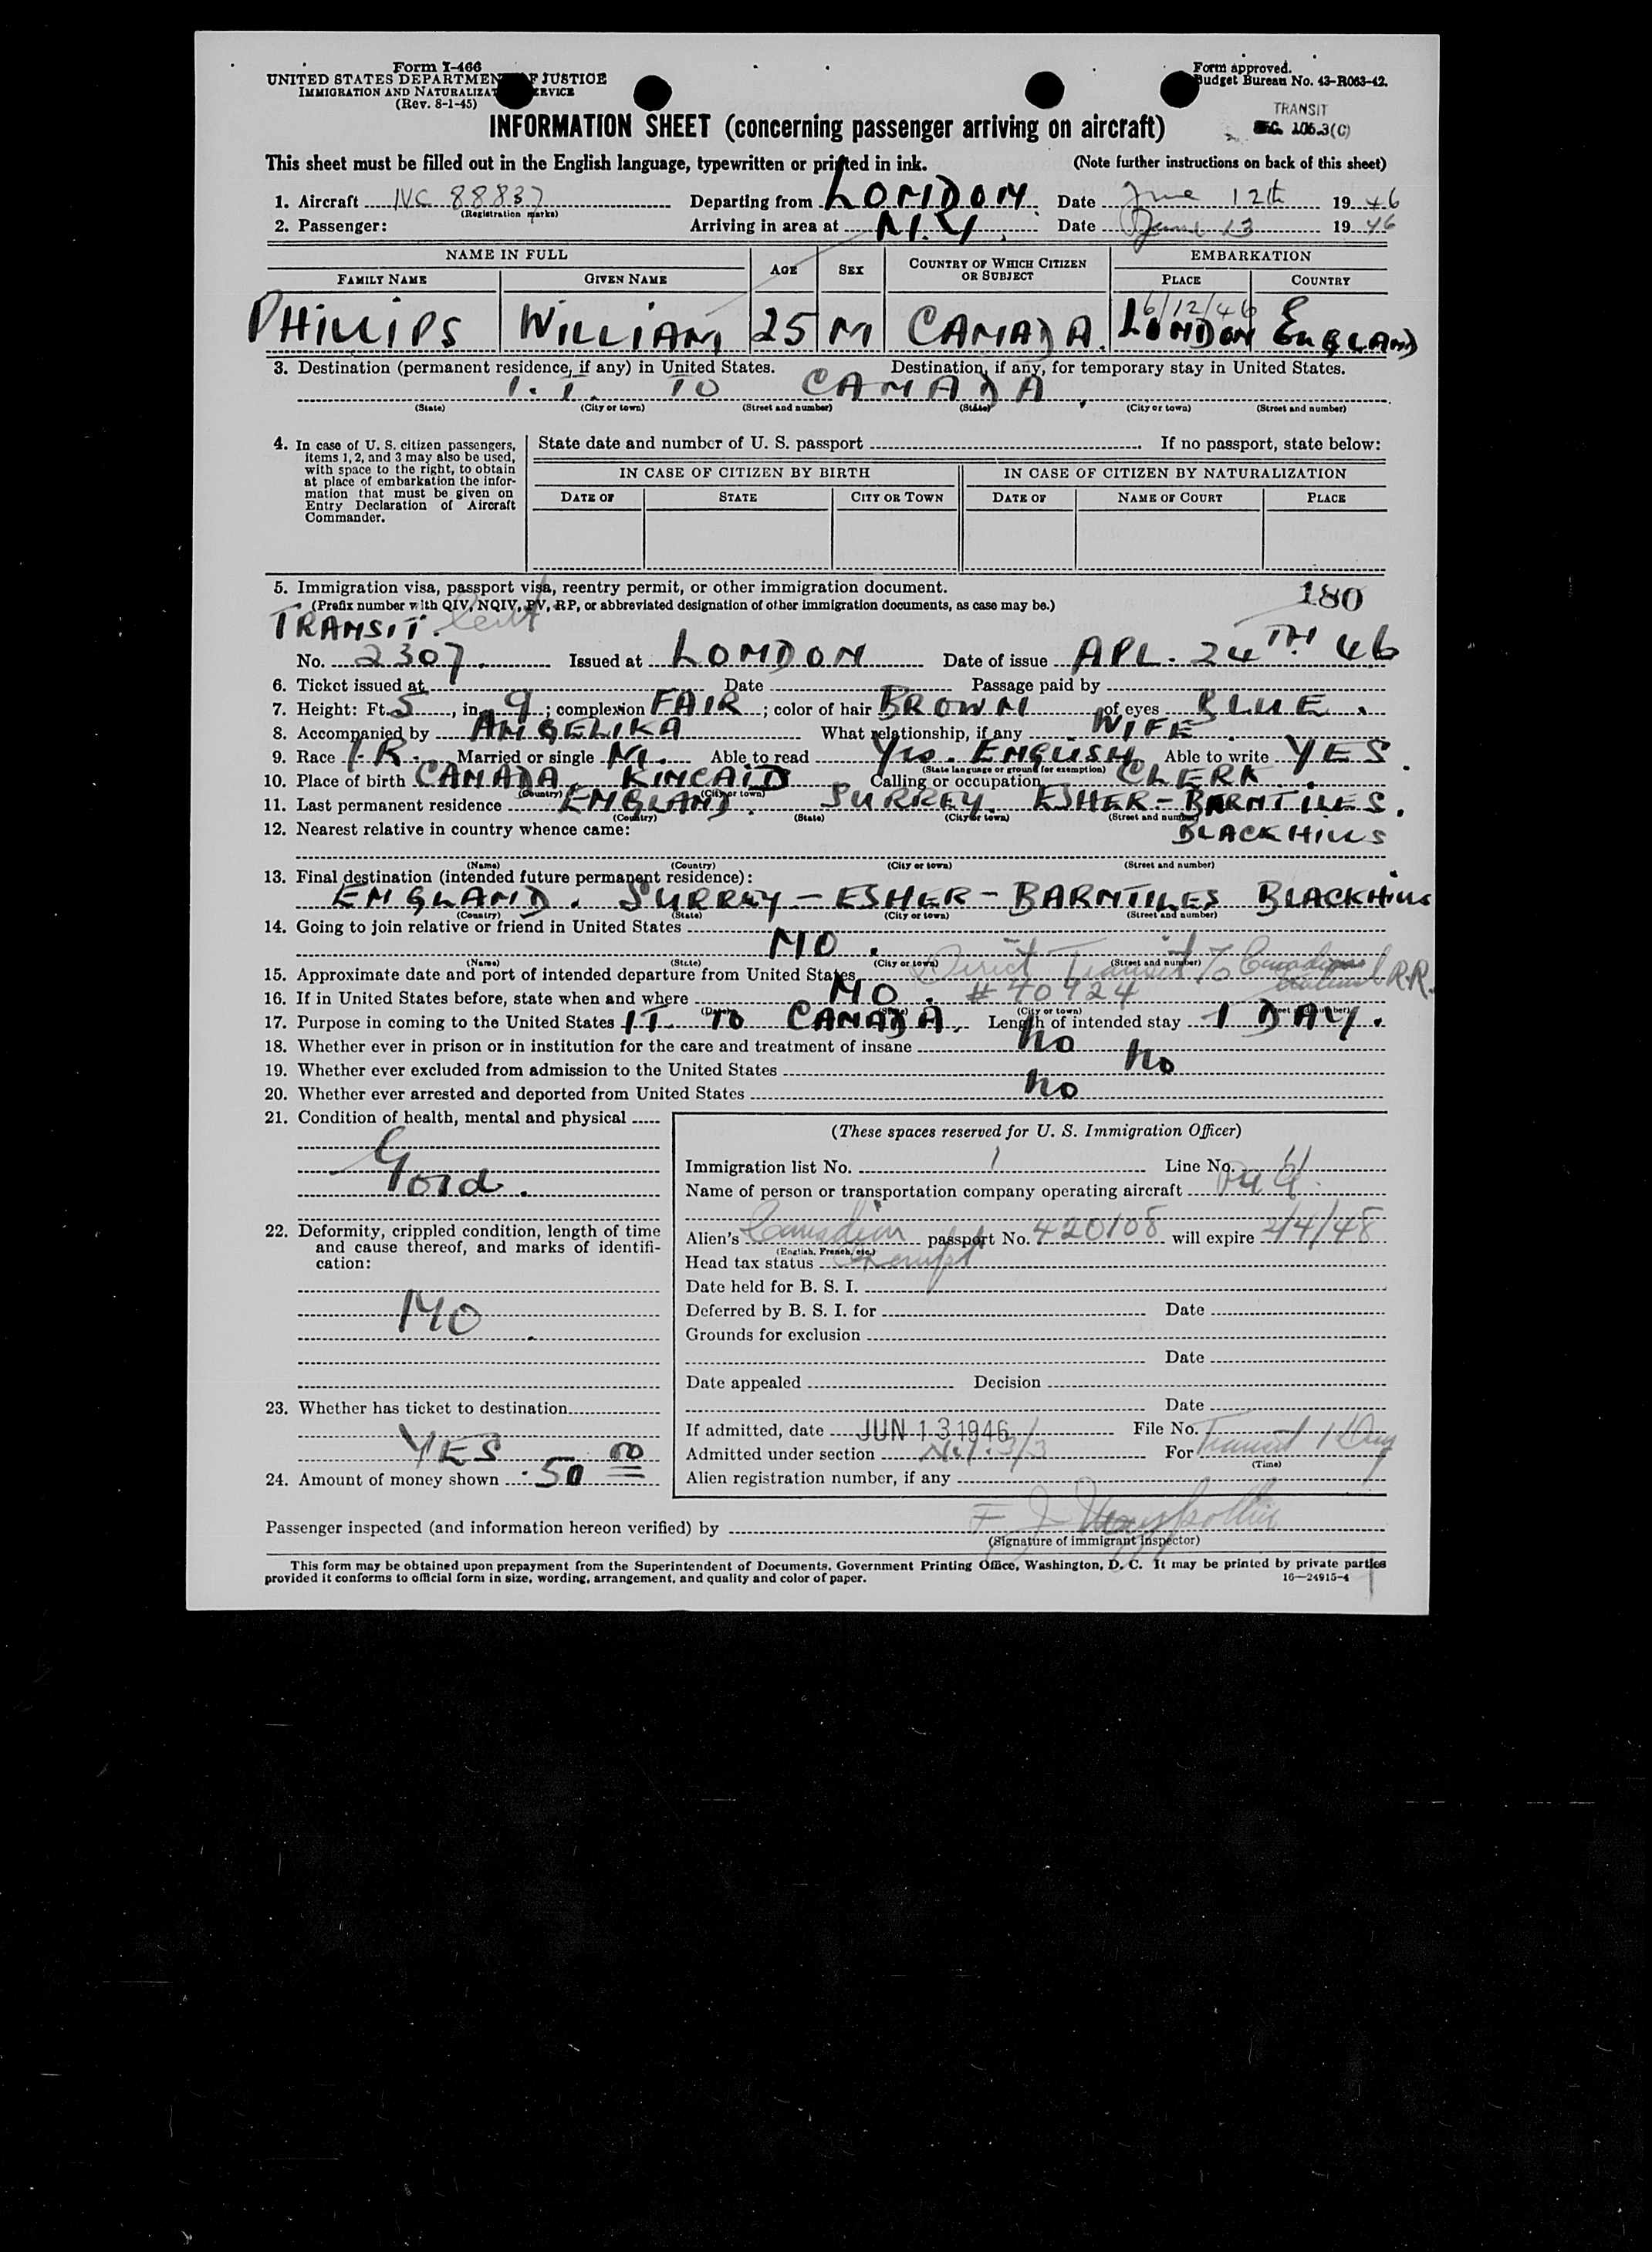 Form I-466
UNITED STATES DEPARTMENT OF JUSTICE
IMMIGRATION AND NATURALIZATION SERVICE
(Rev. 8-1-45)
Form approved.
Budget Bureau No. 43-R063-42.
TRANSIT
SEC. 106.3(C)
INFORMATION SHEET (concerning passenger arriving on aircraft)
This sheet must be filled out in the English language, typewritten or printed in ink. (Note further instructions on back of this sheet)
1. Aircraft NC 88837 Departing from LONDON. Date June 12th 1946
(Registration marks)
2. Passenger: Arriving in area at N.Y. Date June 13 1946
NAME IN FULL AGE SEX COUNTRY OF WHICH CITIZEN OR SUBJECT EMBARKATION
FAMILY NAME GIVEN NAME PLACE COUNTRY
6/12/46
PHILLIPS WILLIAM 25 M CANADA. LONDON ENGLAND
3. Destination (permanent residence, if any) in United States. Destination, if any, for temporary stay in United States.
I.T. TO CANADA.
(State) (City or town) (Street and number) (State) (City or town) (Street and number)
4. In case of U. S. citizen passengers, items 1, 2, and 3 may also be used, with space to the right, to obtain at place of embarkation the information that must be given on Entry Declaration of Aircraft Commander.
State date and number of U. S. passport If no passport, state below:
IN CASE OF CITIZEN BY BIRTH IN CASE OF CITIZEN BY NATURALIZATION
DATE OF STATE CITY OR TOWN DATE OF NAME OF COURT PLACE
5. Immigration visa, passport visa, reentry permit, or other immigration document. 180
(Prefix number with QIV, NQIV, PV, RP, or abbreviated designation of other immigration documents, as case may be.)
TRANSIT. Cert
No. 2307. Issued at LONDON Date of issue APL. 24TH 46
6. Ticket issued at Date Passage paid by
7. Height: Ft. 5, in. 9; complexion FAIR; color of hair BROWN of eyes BLUE.
8. Accompanied by ANGELIKA What relationship, if any WIFE.
9. Race IR. Married or single M. Able to read Yes. ENGLISH Able to write YES.
(State language or ground for exemption)
10. Place of birth CANADA KINCAID Calling or occupation CLERK.
(Country) (City or town)
11. Last permanent residence ENGLAND. SURREY. ESHER - BARNTILES.
(Country) (State) (City or town) (Street and number)
12. Nearest relative in country whence came: BLACKHILLS
(Name) (Country) (City or town) (Street and number)
13. Final destination (intended future permanent residence):
ENGLAND. SURREY - ESHER - BARNTILES BLACKHILLS
(Country) (State) (City or town) (Street and number)
14. Going to join relative or friend in United States
NO.
(Name) (State) (City or town) (Street and number)
15. Approximate date and port of intended departure from United States Direct Transit To Canadian R.R.
16. If in United States before, state when and where NO. # 40424
(Date) (State) (City or town) (Street and number)
17. Purpose in coming to the United States I.T. TO CANADA. Length of intended stay 1 DAY.
18. Whether ever in prison or in institution for the care and treatment of insane No
19. Whether ever excluded from admission to the United States No
20. Whether ever arrested and deported from United States No
21. Condition of health, mental and physical
Good.
22. Deformity, crippled condition, length of time and cause thereof, and marks of identification:
NO.
23. Whether has ticket to destination
YES
24. Amount of money shown 50 00
(These spaces reserved for U. S. Immigration Officer)
Immigration list No. 1 Line No.
Name of person or transportation company operating aircraft
Alien's Canadian passport No. 420108 will expire 2/4/48
(English, French, etc.)
Head tax status Exempt
Date held for B. S. I.
Deferred by B. S. I. for Date
Grounds for exclusion
Date
Date appealed Decision
Date
If admitted, date JUN 13 1946 File No.
Admitted under section 3/3 For Transit 1 Day
(Time)
Alien registration number, if any
Passenger inspected (and information hereon verified) by F J
(Signature of immigrant inspector)
This form may be obtained upon prepayment from the Superintendent of Documents, Government Printing Office, Washington, D. C. It may be printed by private parties
provided it conforms to official form in size, wording, arrangement, and quality and color of paper. 16—24915-4